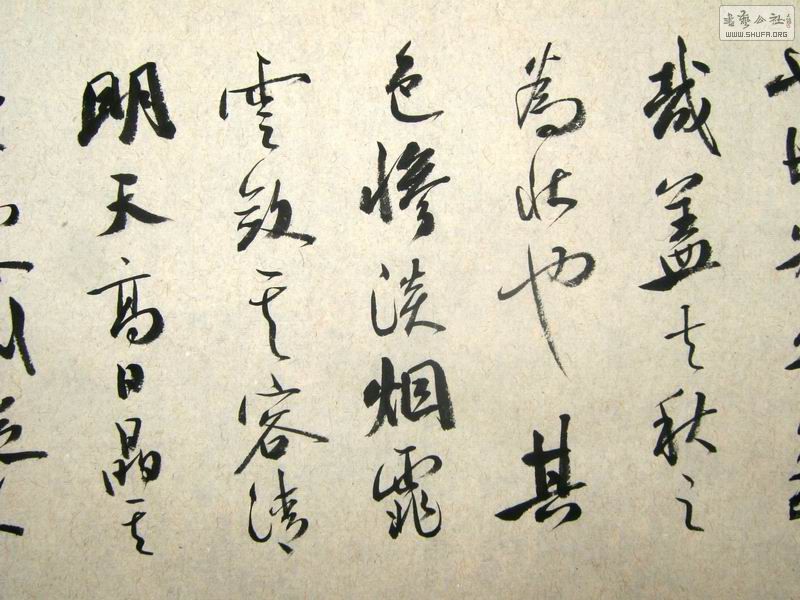 哉蓋夫秋之
為狀也其
色慘淡烟霏
雲斂其容清
明天高日晶其
書藝公社
WWW.SHUFA.ORG